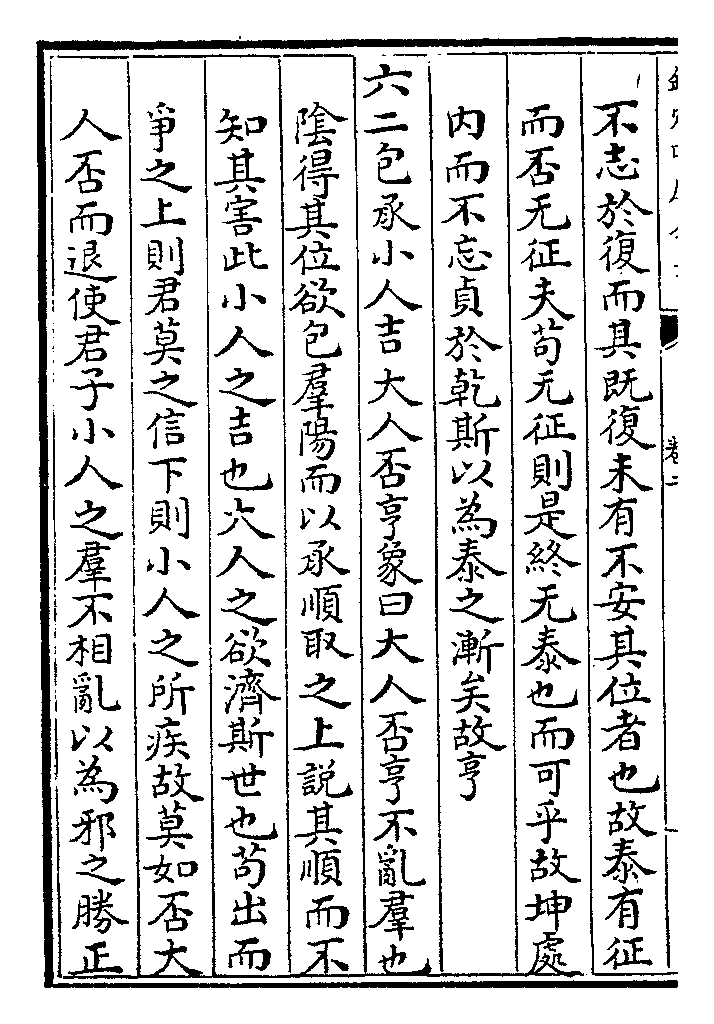 不志於復而其既復未有不安其位者也故泰有征
而否无征夫茍无征則是終无泰也而可乎故坤處
内而不忘貞於乾斯以為泰之漸矣故亨
六二包承小人吉大人否亨象曰大人否亨不亂羣也
陰得其位欲包羣陽而以承順取之上說其順而不
知其害此小人之吉也大人之欲濟斯世也茍出而
爭之上則君莫之信下則小人之所疾故莫如否大
人否而退使君子小人之羣不相亂以為邪之勝正